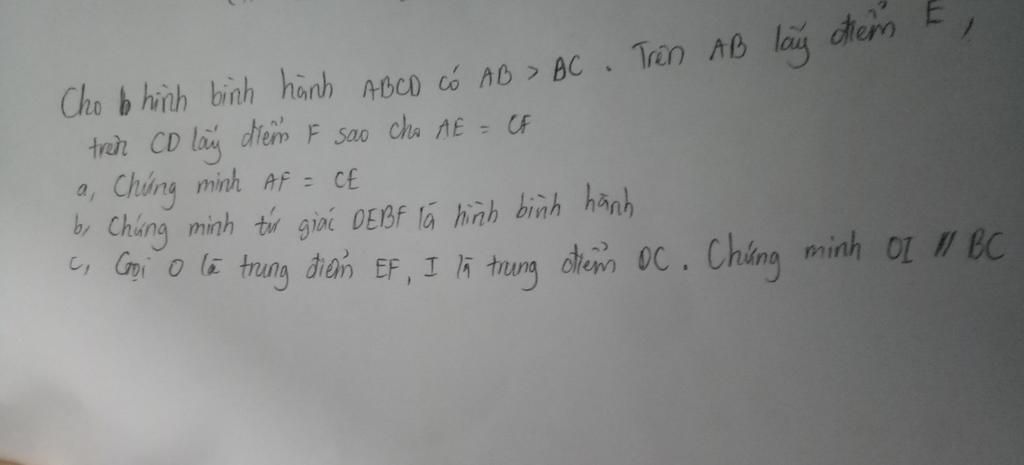 Cho hình bình hành ABCD có AB > BC. Trên AB lấy điểm E,
trên CD lấy điểm F sao cho AE = CF
a, Chứng minh AF = CE
b, Chứng minh tứ giác DEBF là hình bình hành
c, Gọi O là trung điểm EF, I là trung điểm DC. Chứng minh OI // BC